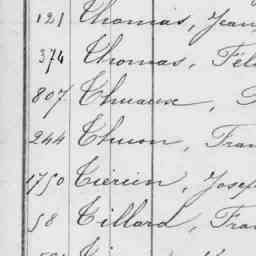 121 Thomas, Jean
374 Thomas, Fél
807 Thuaux,
244 Thuon, Fran
1750 Tiercin, Josep
58 Tillard, Fra